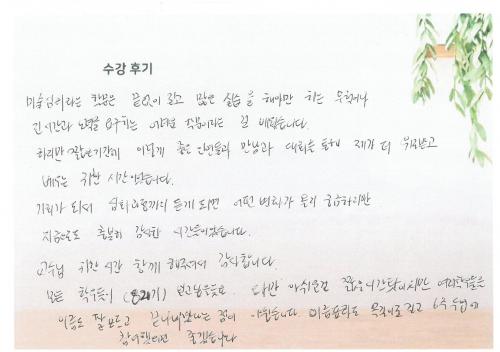 수강 후기
미술심리라는 학문은 끝없이 깊고 많은 실습을 해야만 하는
긴시간과 노력을 요구하는 어려운 학문이라는 걸 배웠습니다.
하지만 짧은기간에 이렇게 좋은 인연들과 만남과 대화를 통해 제가 더 위로받고
배우는 귀한 시간이었습니다.
기회가 되서 심화과정까지 듣게 되면 어떤 변화가 올지 궁금하지만
지금으로도 충분히 감사한 시간들이었습니다.
교수님 귀한시간 함께 해주셔서 감사합니다.
모든 학우들이 보고싶을듯요. 다만 아쉬운건 짧은시간탓이지만 여러학우들은
이름도 잘 모르고 끝나버렸다는 점이 아쉽습니다 이름표라도 목걸이로 걸고 6주 수업에
참여했으면 좋겠습니다